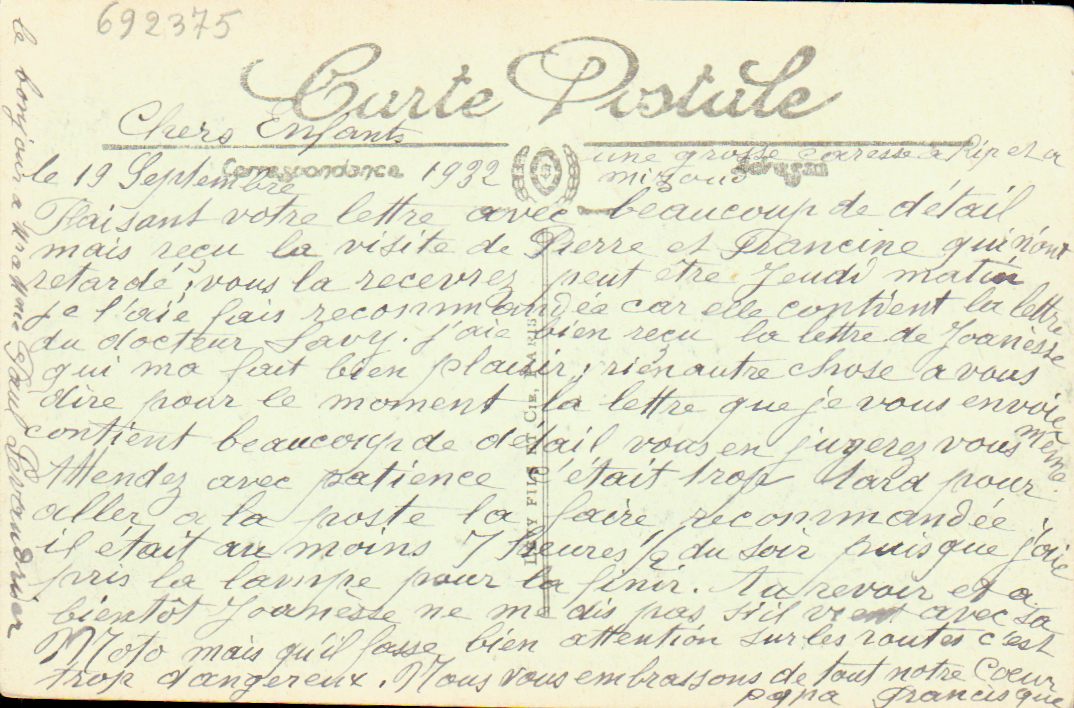 692375
Carte Postale
Chers Enfants
Correspondance
le 19 Septembre 1932
une grosse Caresse a Pip et a
mizoud
Faisant votre lettre avec beaucoup de détail
mais reçu la visite de Pierre et Francine qui n'ont
retardé, vous la recevrez peut être Jeudi matin
je l'aie fais recommandée car elle contient la lettre
du docteur Savy. j'aie bien reçu la lettre de Joanèsse
qui ma fait bien plaisir, rien autre chose a vous
dire pour le moment la lettre que je vous envoie
contient beaucoup de détail vous en jugerez vous même.
Attendez avec patience c'était trop tard pour
aller a la poste la faire recommandée
il était au moins 7 heures 1/2 du soir puisque j'aie
pris la lampe pour la finir. Au revoir et a
bientôt Joanèsse ne me dis pas s'il vient avec sa
Moto mais qu'il fasse bien attention sur les routes c'est
trop dangereux. Nous vous embrassons de tout notre Cœur
papa Francisque
le bonjour a Madame Paul Levandrier
LEVY FILS ET CIE. PARIS